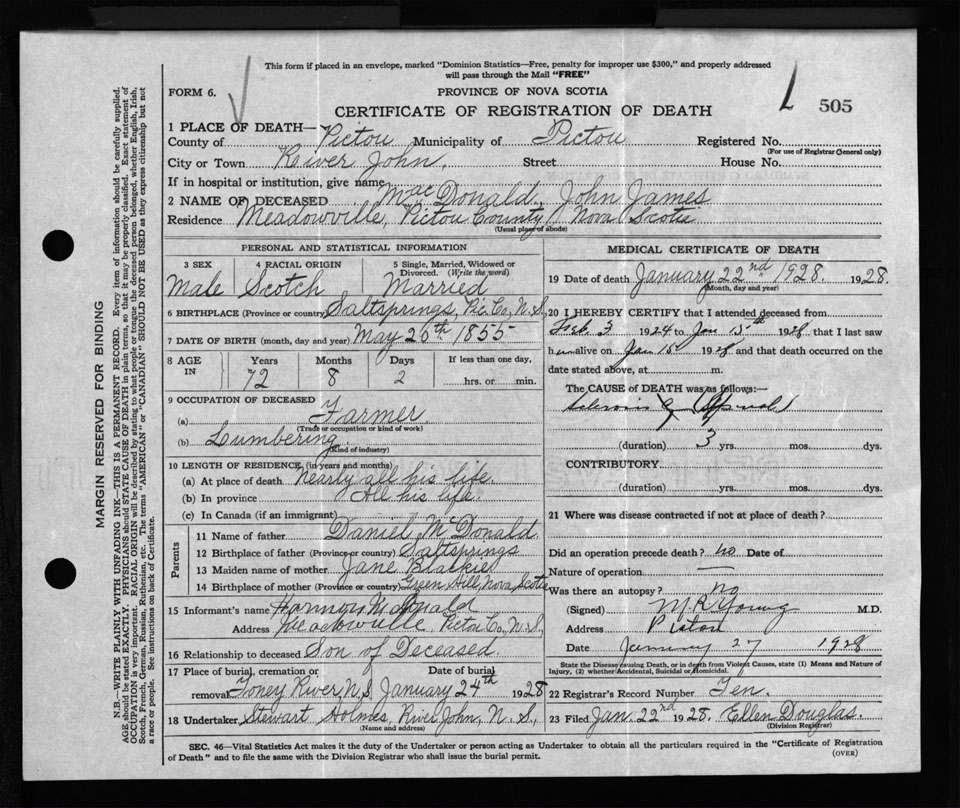 This form if placed in an envelope, marked "Dominion Statistics—Free, penalty for improper use $300," and properly addressed
will pass through the Mail "FREE"
FORM 6.
PROVINCE OF NOVA SCOTIA
CERTIFICATE OF REGISTRATION OF DEATH
505
MARGIN RESERVED FOR BINDING
N.B.—WRITE PLAINLY WITH UNFADING INK—THIS IS A PERMANENT RECORD. Every item of information should be carefully supplied.
AGE should be stated EXACTLY. PHYSICIANS should STATE CAUSE OF DEATH in plain terms, so that it may be properly classified. Exact statement of
OCCUPATION is very important. RACIAL ORIGIN will be described by stating to what people or tongue the deceased person belonged, whether English, Irish,
Scotch, French, German, Russian, Ruthenian, etc. The terms "AMERICAN" or "CANADIAN" SHOULD NOT BE USED as they express citizenship but not
a race or people. See instructions on back of Certificate.
1 PLACE OF DEATH—
County of Pictou Municipality of Pictou Registered No.
(For use of Registrar General only)
City or Town River John, Street House No.
If in hospital or institution, give name
2 NAME OF DECEASED MacDonald, John James
Residence Meadowville, Pictou County Nova Scotia
(Usual place of abode)
PERSONAL AND STATISTICAL INFORMATION
3 SEX 4 RACIAL ORIGIN 5 Single, Married, Widowed or
Divorced. (Write the word)
Male Scotch Married
6 BIRTHPLACE (Province or country) Saltsprings, Pic. Co, N.S,
7 DATE OF BIRTH (month, day and year) May 26th 1855
8 AGE IN Years Months Days If less than one day,
72 8 2 hrs. or min.
9 OCCUPATION OF DECEASED
(a) Farmer
(Trade or occupation or kind of work)
(b) Lumbering
(Kind of industry)
10 LENGTH OF RESIDENCE (in years and months)
(a) At place of death nearly all his life
(b) In province All his life.
(c) In Canada (if an immigrant)
Parents
11 Name of father Daniel McDonald
12 Birthplace of father (Province or country) Saltsprings
13 Maiden name of mother Jane Blackie
14 Birthplace of mother (Province or country) Green Hill, Nova Scotia
15 Informant's name McDonald
Address Meadowville, Pictou Co, N.S,
16 Relationship to deceased Son of Deceased.
17 Place of burial, cremation or Date of burial
removal Toney River, N.S, January 24th 1928
18 Undertaker Stewart Holmes, River John, N.S.,
(Name and address)
MEDICAL CERTIFICATE OF DEATH
19 Date of death January 22nd 1928. 1928.
(Month, day and year)
20 I HEREBY CERTIFY that I attended deceased from
Feb 3 1924 to Jan 15th 1928 that I last saw
him alive on Jan 15 1928 and that death occurred on the
date stated above, at m.
The CAUSE OF DEATH was as follows:—
(duration) 3 yrs. mos. dys.
CONTRIBUTORY
(duration) yrs. mos. dys.
21 Where was disease contracted if not at place of death?
Did an operation precede death? no Date of
Nature of operation —
Was there an autopsy? no
(Signed) M R Young M.D.
Address Pictou
Date January 27 1928
State the Disease causing Death, or in death from Violent Causes, state (1) Means and Nature of
Injury, (2) whether Accidental, Suicidal or Homicidal.
22 Registrar's Record Number Ten.
23 Filed Jan. 22nd 1928. Ellen Douglas.
(Division Registrar)
SEC. 46—Vital Statistics Act makes it the duty of the Undertaker or person acting as Undertaker to obtain all the particulars required in the "Certificate of Registration
of Death" and to file the same with the Division Registrar who shall issue the burial permit.
(OVER)